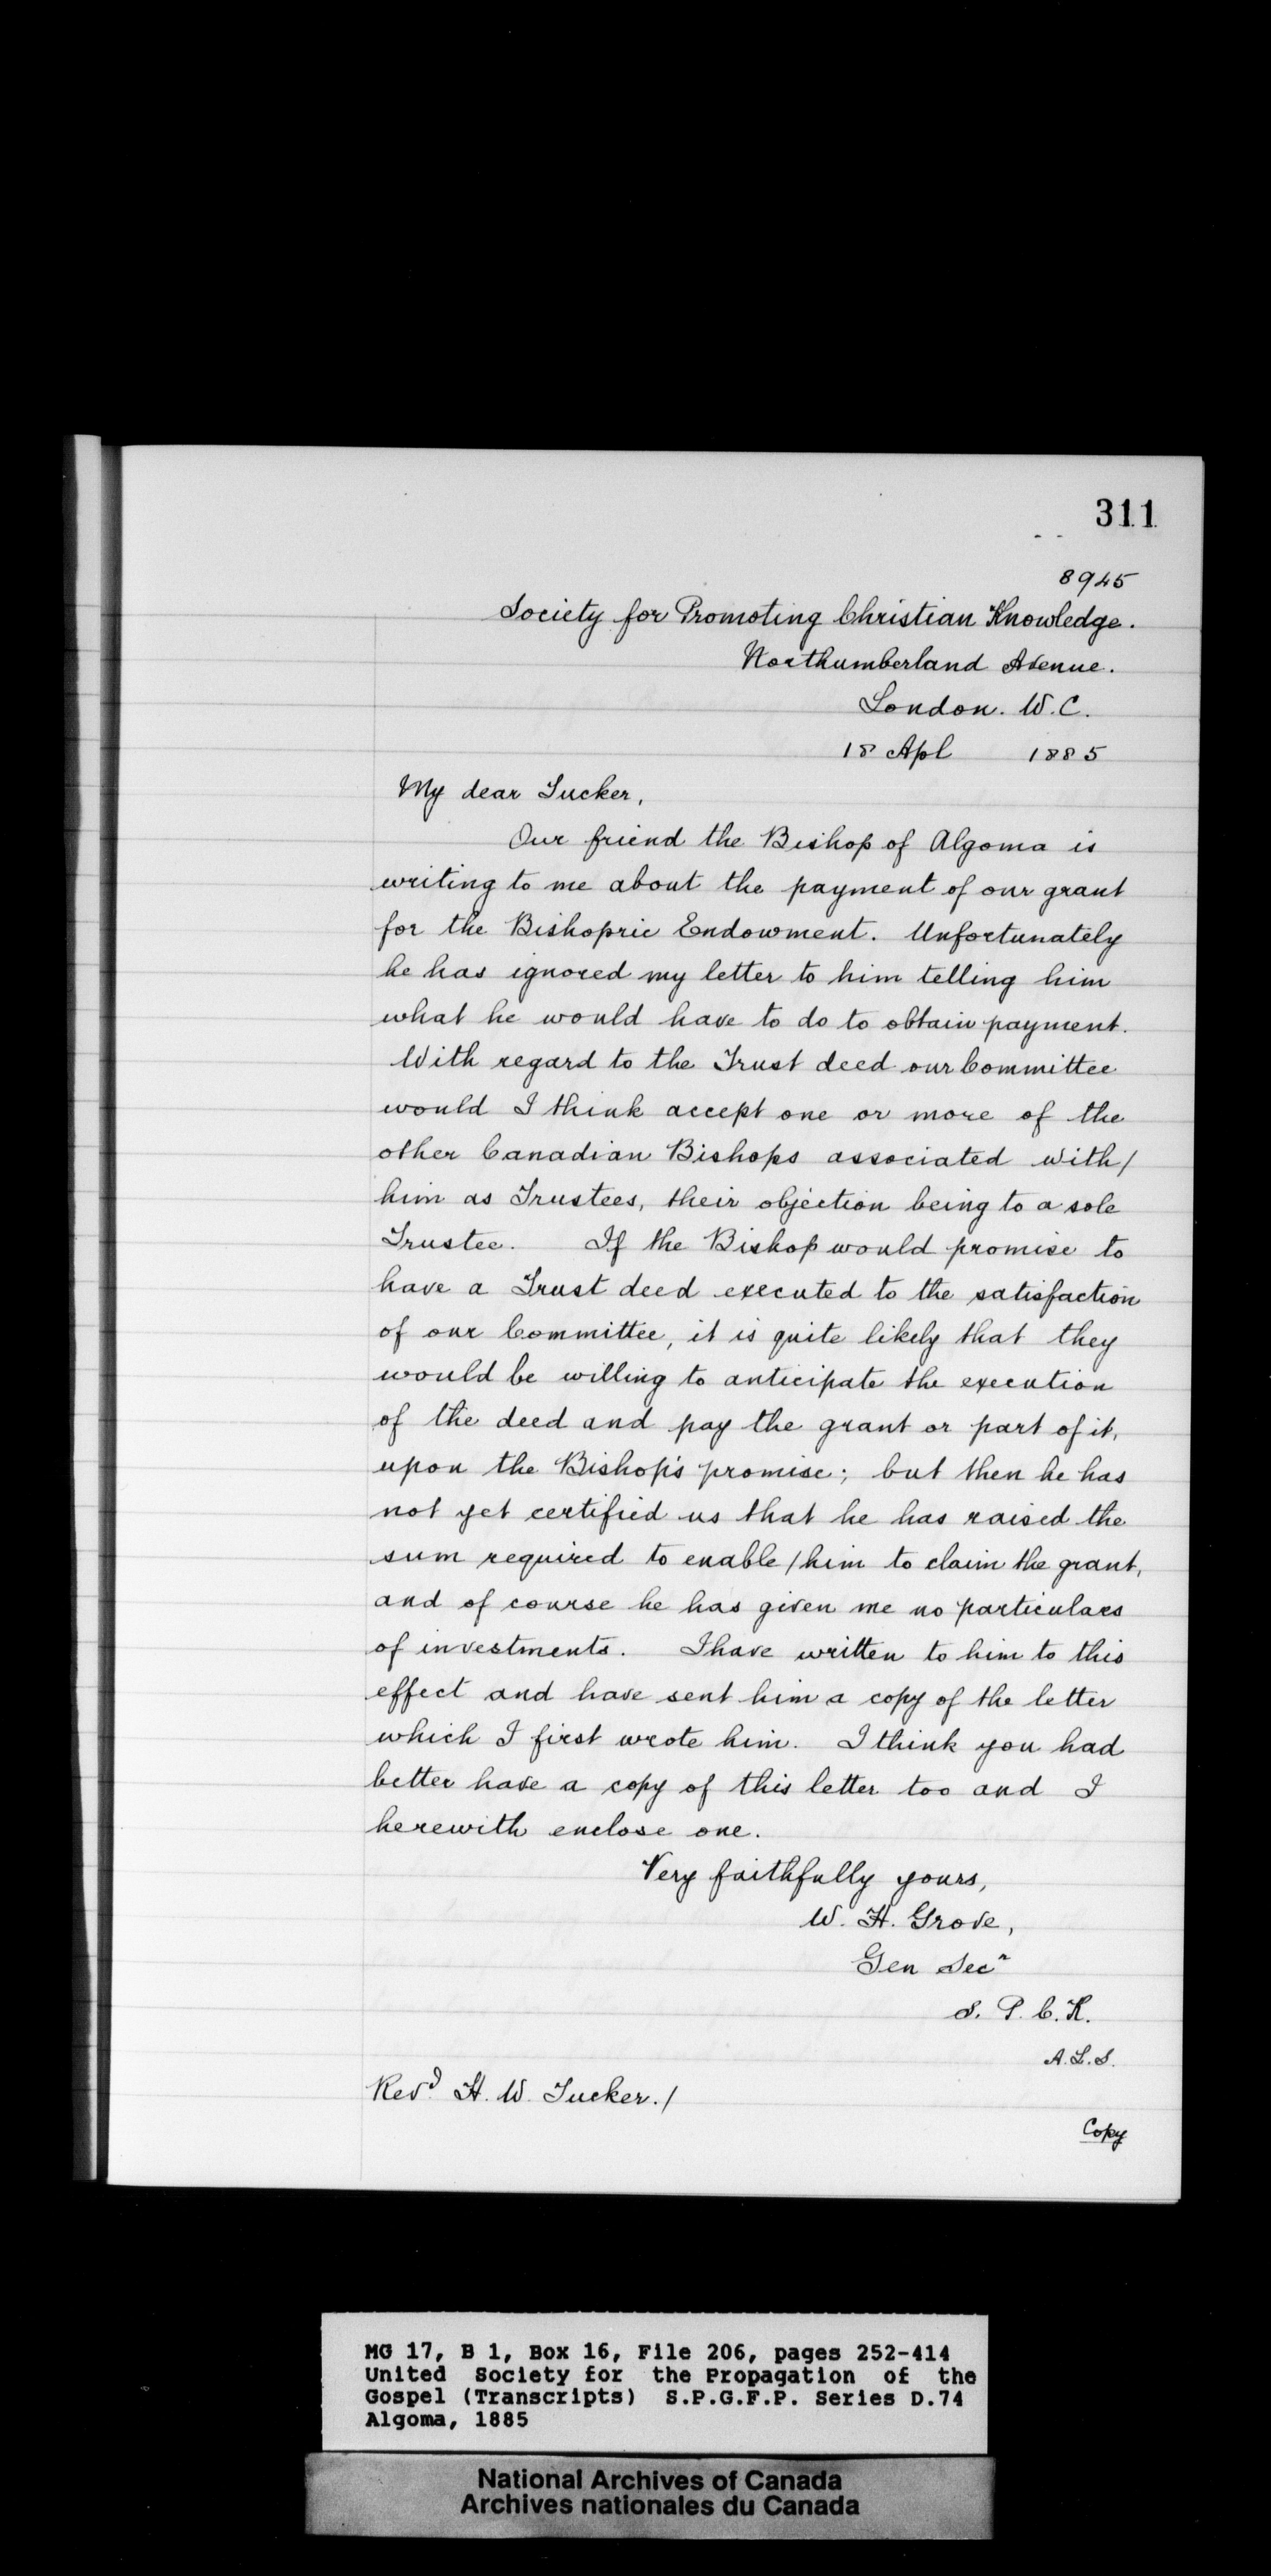 311
8945
Society for Promoting Christian Knowledge.
Northumberland Avenue.
London. W.C.
18 Apl 1885
My dear Tucker,
Our friend the Bishop of Algoma is
writing to me about the payment of our grant
for the Bishopric Endowment. Unfortunately
he has ignored my letter to him telling him
what he would have to do to obtain payment.
With regard to the Trust deed our Committee
would I think accept one or more of the
other Canadian Bishops associated with/
him as Trustees, their objection being to a sole
Trustee. If the Bishop would promise to
have a Trust deed executed to the satisfaction
of our Committee, it is quite likely that they
would be willing to anticipate the execution
of the deed and pay the grant or part of it,
upon the Bishop's promise; but then he has
not yet certified us that he has raised the
sum required to enable/him to claim the grant,
and of course he has given me no particulars
of investments. I have written to him to this
effect and have sent him a copy of the letter
which I first wrote him. I think you had
better have a copy of this letter too and I
herewith enclose one.
Very faithfully yours,
W. H. Grove,
Gen Secr
S. P. C. K.
A.L.S.
Revd H. W. Tucker./
Copy
MG 17, B 1, Box 16, File 206, pages 252-414
United Society for the Propagation of the
Gospel (Transcripts) S.P.G.F.P. Series D.74
Algoma, 1885
National Archives of Canada
Archives nationales du Canada